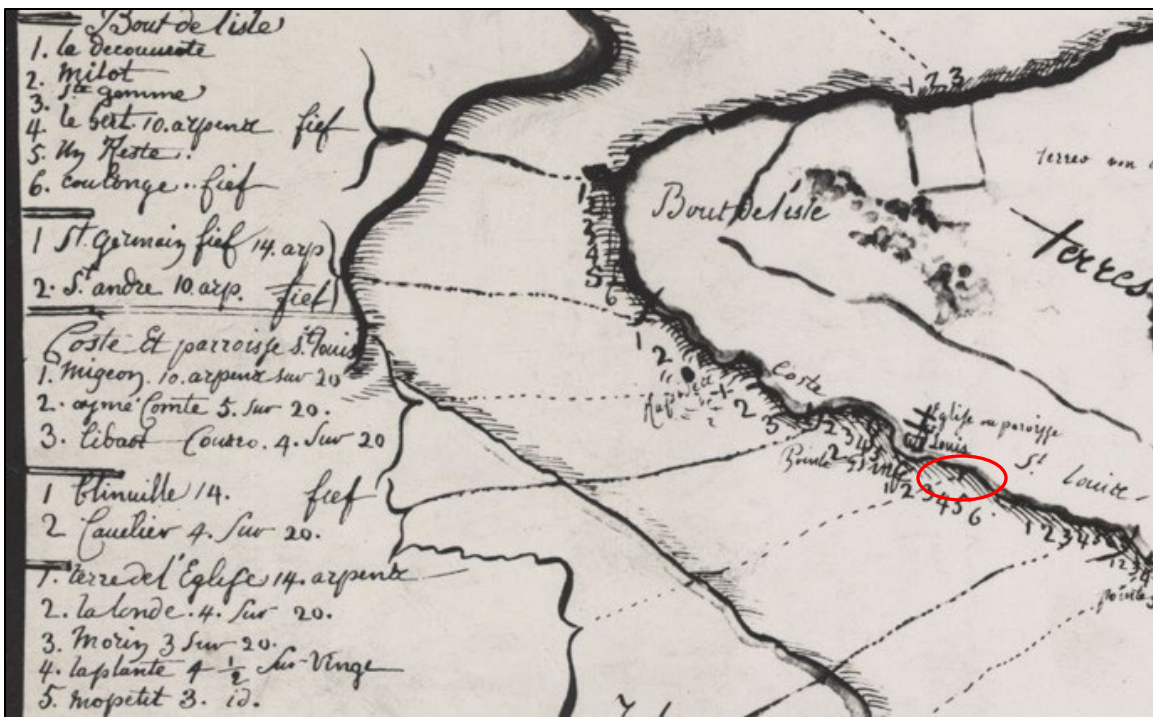 Bout de lisle
1. la decouuerte
2. milot
3. ste gemme
4 le bert. 10. arpent fief
5. Un Reste.
6. coulonge.. fief
1 St. Germain fief 14. arp
2. St. andre 10. arp. fief
Coste Et parroisse st. Louis
1. migeon. 10. arpent sur 20
2. Comte 5. Sur 20.
3. libaot Courro. 4. Sur 20
1 14. fief
2 Cauelier 4. Sur 20.
1. terre de l'Eglise 14. arpent
2. la londe. 4. Sur 20.
3. Morin 3 Sur 20.
4. laplante 4 1/2 Sur Vinge
5. mopetit 3. id.
1 2 3
terres
Bout de l'isle
Terres
4
5
6
1 2
2
Coste
1 2 3 4 5
Eglise ou paroisse
St Louis
St. Louice
Pointe
1 2 3 4 5 6
1 2 3 4 5
1 2 3 4